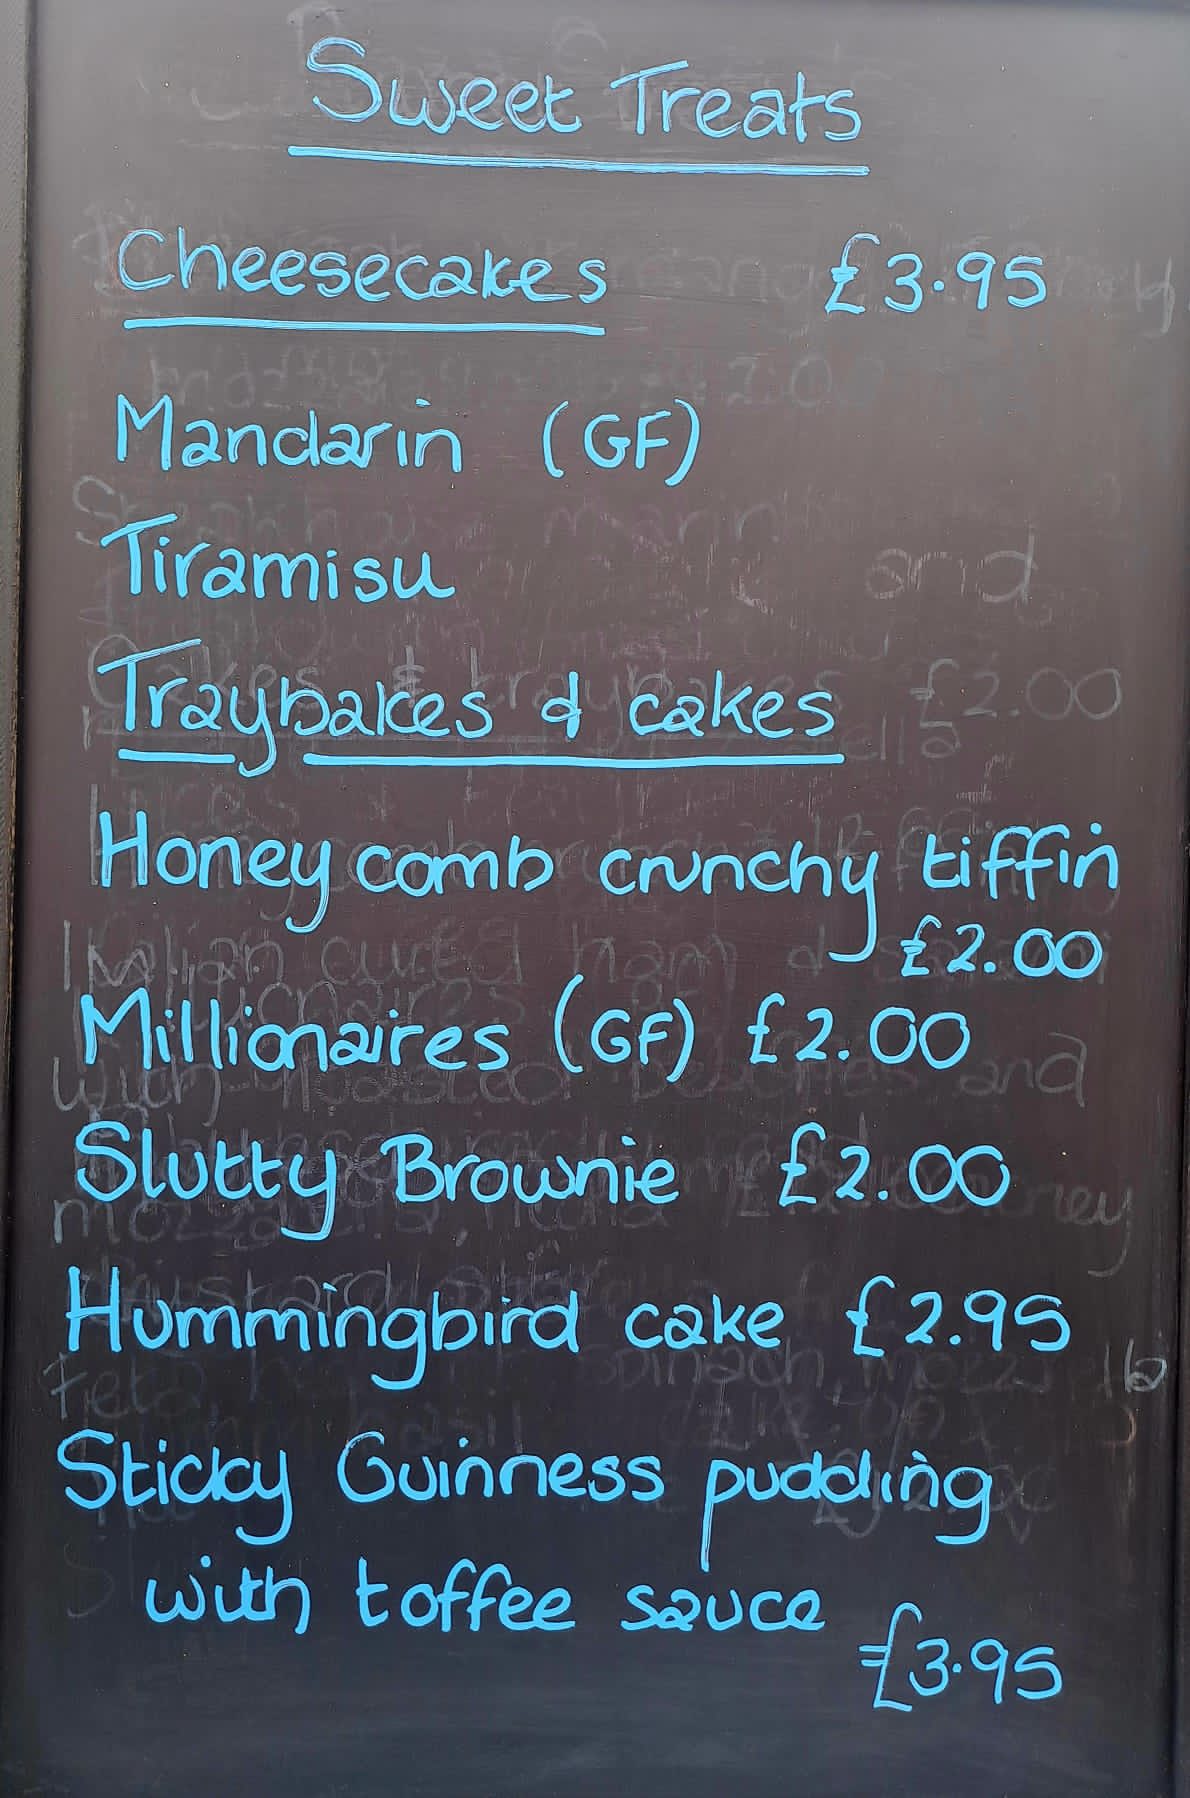 Sweet Treats
Cheesecakes £3.95
Mandarin (GF)
Tiramisu
Traybakes & cakes
Honeycomb crunchy tiffin
£2.00
Millionaires (GF) £2.00
Slutty Brownie £2.00
Hummingbird cake £2.95
Sticky Guinness pudding
with toffee sauce
£3.95